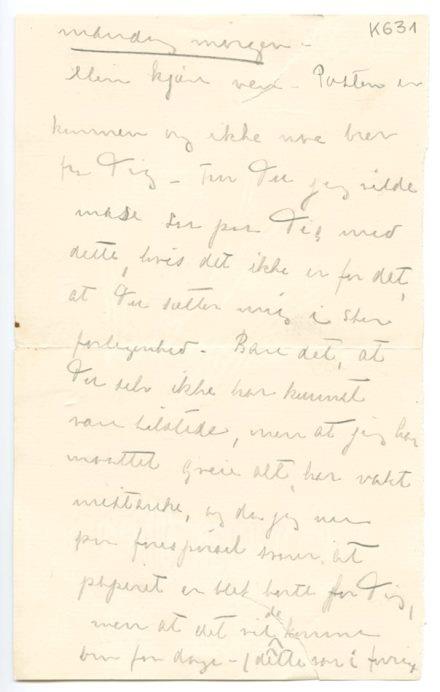 K631
mandag morgen -
Min kjære ven - Posten er
kommen og ikke noe brev
fra Dig - Tror Du jeg vilde
mase saa paa Dig med
dette, hvis det ikke er for det,
at Du sætter mig i stor
forlegenhed. Bare det, at
Du selv ikke har kunnet
være tilstede, men at jeg har
maattet greie alt, har vakt
mistanke, og da jeg nu
paa forespørsel svarer, at
papiret er blet borte for Dig,
men at det vil komme
om faa dage - (dette var i forrige